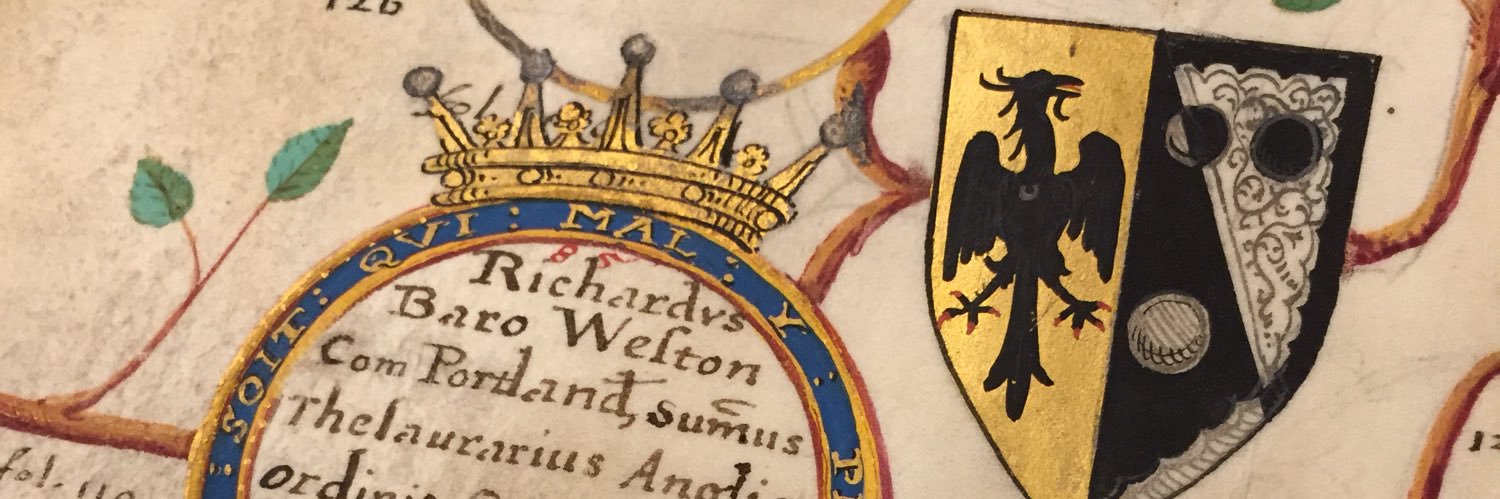 126
SOIT : QVI : MAL : Y : P
85
Richardvs
Baro Weſton
Com Portland, Sum̄us
Theſaurarius Angli
fol. 119